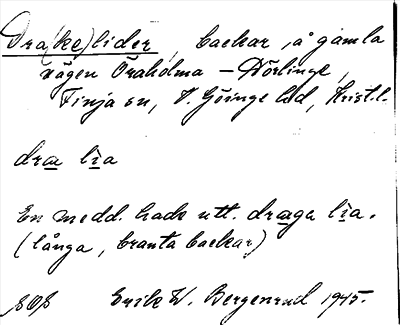 Dra(ke)lider, backar, å gamla
vägen Öraholma – Dörlinge,
Finja sn, V. Göinge hd, Krist.l.
dræ lìa
En medd. hade utt. dræga lìa.
(långa, branta backar)
SOS Erik W. Bergenrud 1945.